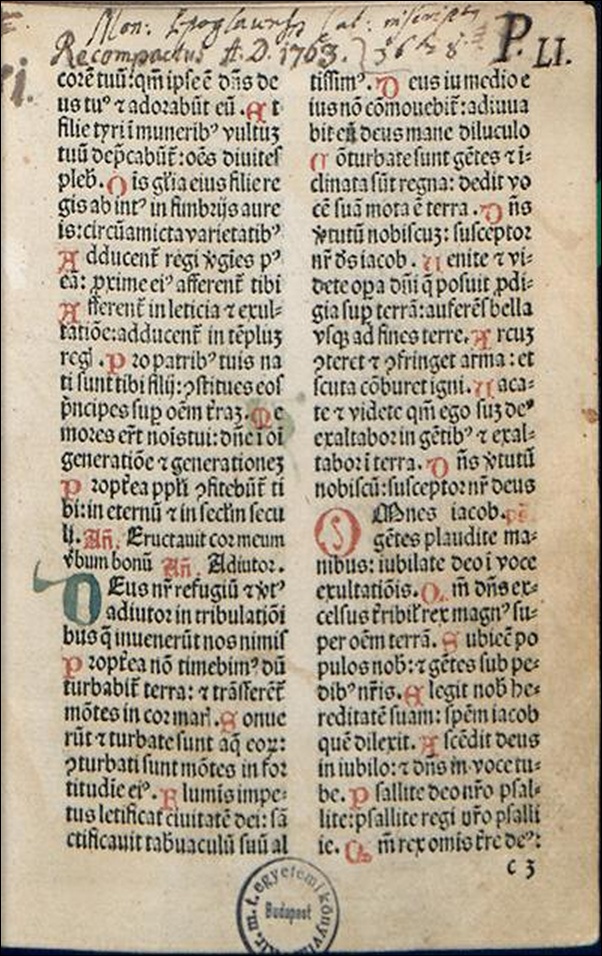 Mon: Lpoglavensis Cat: inscriptus
Recompactus A.D. 1763.
P. LI.
corẽ tuũ: qm̃ ipse ẽ dñs de
us tuꝰ ⁊ adorabũt eũ. Et
filie tyri ĩ muneribꝰ vultuʒ
tuũ dep̃cabũt̃: oẽs diuites
pleb̃. Ois gl̃ia eius filie re
gis ab intꝰ in fimbrijs aure
is: circũamicta varietatibꝰ
Adducent̃ regi v̾gies pꝰ
eã: ꝓxime eiꝰ afferent̃ tibi
Afferent̃ in leticia ⁊ exul-
tatiõe: adducent̃ in tẽpluʒ
regi. Pro patribꝰ tuis na
ti sunt tibi filij: ꝯstitues eos
p̃ncipes suꝑ oẽm t̃raʒ. Me
mores er̃t nois tui: dñe ĩ oĩ
generatiõe ⁊ generationeʒ
Propt̃ea ppl̃i ꝯfitebũt̃ ti
bi: in eternũ ⁊ in secl̃m secu
li. Añ. Eructauit cor meum
v̾bum bonũ Añ. Adiutor.
Deus nr̃ refugiũ ⁊ v̾tꝰ
adiutor in tribulatiõi
bus q̃ inuenerũt nos nimis
Propt̃ea nõ timebimꝰ dũ
turbabit̃ terra: ⁊ trãsferẽt̃
mõtes in cor mar̃. Sonue
rũt ⁊ turbate sunt aq̃ eoꝝ:
ꝯturbati sunt mõtes in for
titudĩe eiꝰ. Fluminis impe-
tus letificat ciuitatẽ dei: sã
ctificauit tab̾naculũ suũ al
tissimꝰ. Deus in medio e
ius nõ cõmouebit̃: adiuua
bit eã deus mane diluculo
Cõturbate sunt gẽtes ⁊ ĩ-
clinata sũt regna: dedit vo
cẽ suã mota ẽ terra. Dñs
v̾tutũ nobiscuʒ: susceptor
nr̃ d̃s iacob. Uenite ⁊ vi-
dete oꝑa dñi q̃ posuit ꝓdi-
gia suꝑ terrã: auferẽs bella
vsqʒ ad fines terre. Arcuʒ
ꝯteret ⁊ ꝯfringet arma: et
scuta cõburet igni. Uaca-
te ⁊ videte qm̃ ego suʒ deꝰ
exaltabor in gẽtibꝰ ⁊ exal-
tabor ĩ terra. Dñs v̾tutũ
nobiscũ: susceptor nr̃ deus
iacob. ps̃.
OMnes
gẽtes plaudite ma-
nibus: iubilate deo ĩ voce
exultatiõis. Qm̃ dñs ex-
celsus t̃ribil̃ rex magnꝰ su-
per oẽm terrã. Subiecẽ po
pulos nob̃: ⁊ gẽtes sub pe-
dibꝰ nr̃is. Elegit nob̃ he-
reditatẽ suam: spẽm iacob
quẽ dilexit. Ascẽdit deus
in iubilo: ⁊ dñs in voce tu-
be. Psallite deo nr̃o psal-
lite: psallite regi nr̃o psalli
te. Qm̃ rex omis t̃re deꝰ:
c 3
kir. m. t. egyetemi könyvtár
Budapest